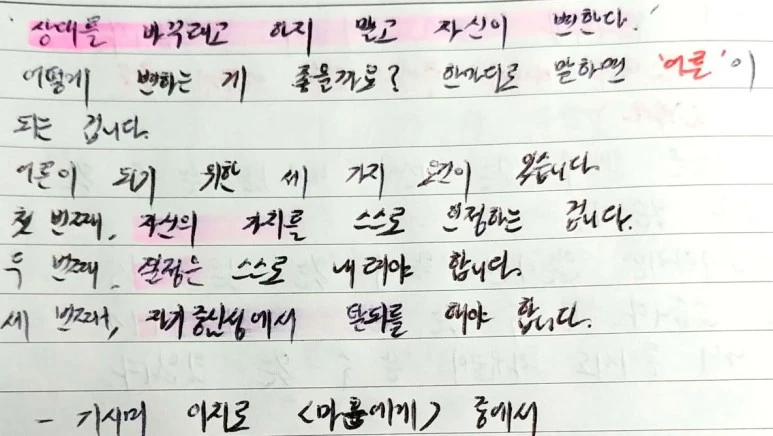 상대를 바꾸려고 하지 말고 자신이 변한다.'
어떻게 변하는 게 좋을까요? 한마디로 말하면 '어른'이
되는 겁니다.
어른이 되기 위한 세 가지 요건이 있습니다.
첫 번째, 자신의 가치를 스스로 인정하는 겁니다.
두 번째, 결정은 스스로 내려야 합니다.
세 번째, 자기중심성에서 탈피를 해야 합니다.
- 기시미 이치로 <마흔에게> 중에서